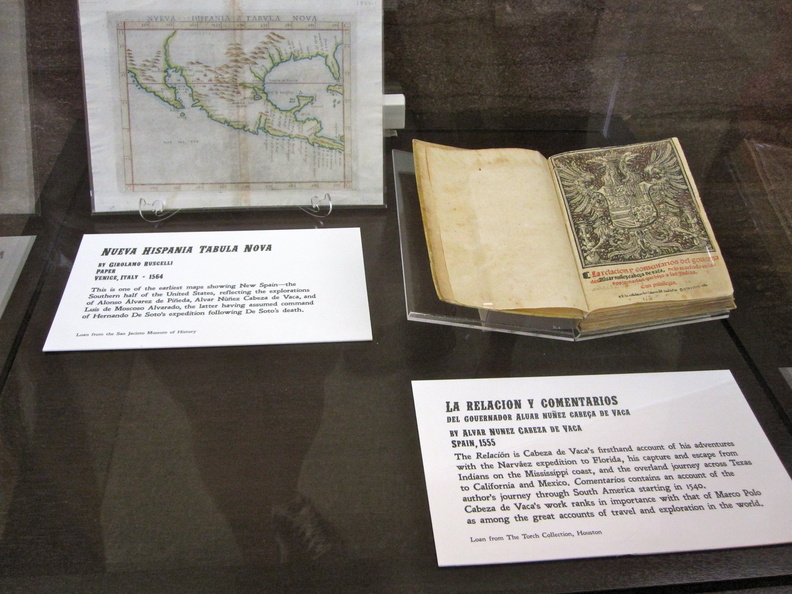 NUEVA HISPANIA TABULA NOVA
NUEVA HISPANIA TABULA NOVA
BY GIROLAMO RUSCELLI
PAPER
VENICE, ITALY - 1564
This is one of the earliest maps showing New Spain—the
Southern half of the United States, reflecting the explorations
of Alonso Álvarez de Piñeda, Alvar Núñez Cabeza de Vaca, and
Luis de Moscoso Alvarado, the latter having assumed command
of Hernando De Soto's expedition following De Soto's death.
Loan from the San Jacinto Museum of History
La relacion y comentarios del
LA RELACION Y COMENTARIOS
DEL GOVERNADOR ALUAR NUÑEZ CABEÇA DE VACA
BY ALVAR NUNEZ CABEZA DE VACA
SPAIN, 1555
The Relación is Cabeza de Vaca's firsthand account of his adventures
with the Narváez expedition to Florida, his capture and escape from
Indians on the Mississippi coast, and the overland journey across Texas
to California and Mexico. Comentarios contains an account of the
author's journey through South America starting in 1540.
Cabeza de Vaca's work ranks in importance with that of Marco Polo
as among the great accounts of travel and exploration in the world.
Loan from The Torch Collection, Houston